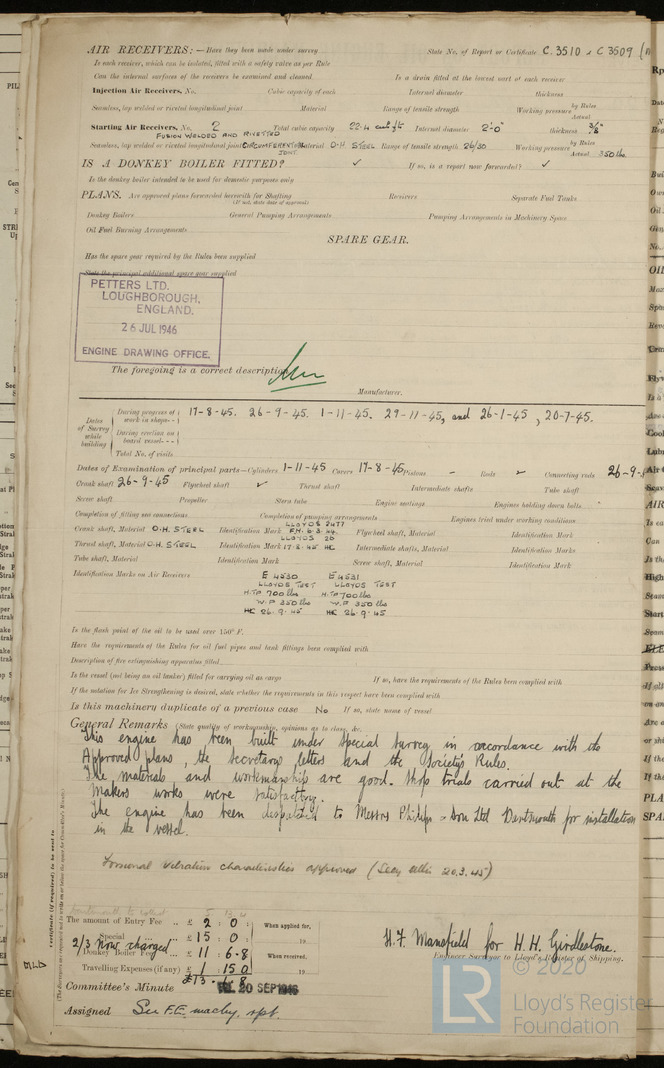 AIR RECEIVERS:— Have they been made under survey State No. of Report or Certificate C.3510 & C3509
Is each receiver, which can be isolated, fitted with a safety valve as per Rule
Can the internal surfaces of the receivers be examined and cleaned Is a drain fitted at the lowest part of each receiver
Injection Air Receivers, No. Cubic capacity of each Internal diameter thickness
Seamless, lap welded or riveted longitudinal joint Material Range of tensile strength Working pressure by Rules Actual
Starting Air Receivers, No. 2 Total cubic capacity 22.4 cub ft Internal diameter 2'-0" thickness 3/8"
FUSION WELDED AND RIVETTED
Seamless, lap welded or riveted longitudinal joint CIRCUMFERENTIAL JOINT Material O-H STEEL Range of tensile strength 26/30 Working pressure by Rules Actual 350 lbs
IS A DONKEY BOILER FITTED? ✓ If so, is a report now forwarded? ✓
Is the donkey boiler intended to be used for domestic purposes only
PLANS. Are approved plans forwarded herewith for Shafting Receivers Separate Fuel Tanks
(If not, state date of approval)
Donkey Boilers General Pumping Arrangements Pumping Arrangements in Machinery Space
Oil Fuel Burning Arrangements
SPARE GEAR.
Has the spare gear required by the Rules been supplied
State the principal additional spare gear supplied
PETTERS LTD.
LOUGHBOROUGH,
ENGLAND.
26 JUL 1946
ENGINE DRAWING OFFICE.
The foregoing is a correct description,
Manufacturer.
Dates of Survey while building
During progress of work in shops-- 17-8-45. 26-9-45. 1-11-45. 29-11-45, and 26-1-45, 20-7-45.
During erection on board vessel---
Total No. of visits
Dates of Examination of principal parts—Cylinders 1-11-45 Covers 17-8-45 Pistons - Rods Connecting rods 26-9-
Crank shaft 26-9-45 Flywheel shaft ✓ Thrust shaft Intermediate shafts Tube shaft
Screw shaft Propeller Stern tube Engine seatings Engines holding down bolts
Completion of fitting sea connections Completion of pumping arrangements Engines tried under working conditions
LLOYDS 2477
Crank shaft, Material O.H. STEEL Identification Mark F.H. 6.3.44. Flywheel shaft, Material Identification Mark
LLOYDS 20
Thrust shaft, Material O.H. STEEL Identification Mark 17-8-45 HC Intermediate shafts, Material Identification Marks
Tube shaft, Material Identification Mark Screw shaft, Material Identification Mark
Identification Marks on Air Receivers E 4530 E 4531
LLOYDS TEST LLOYDS TEST
H.TP 700 lbs H.TP 700 lbs
W.P 350 lbs W.P 350 lbs
HC 26.9.45 HC 26.9.45
Is the flash point of the oil to be used over 150° F.
Have the requirements of the Rules for oil fuel pipes and tank fittings been complied with
Description of fire extinguishing apparatus fitted
Is the vessel (not being an oil tanker) fitted for carrying oil as cargo If so, have the requirements of the Rules been complied with
If the notation for Ice Strengthening is desired, state whether the requirements in this respect have been complied with
Is this machinery duplicate of a previous case No If so, state name of vessel
General Remarks (State quality of workmanship, opinions as to class, &c.
This engine has been built under special survey in accordance with the
Approved plans, the secretarys letters and the Society's Rules.
The materials and workmanship are good. Shop trials carried out at the
makers works were satisfactory.
The engine has been despatched to Messrs Philip & Son Ltd Dartmouth for installation
in the vessel.
Torsional vibration characteristics approved (Secy letter 20.3.45)
The amount of Entry Fee .. £ 2 : 0 : When applied for,
Special £ 15 : 0 : 19
2/3 Now charged
Donkey Boiler Fee £ 11 : 6-8 When received,
Travelling Expenses (if any) £ 1 : 15 0 19
£13 . 1 . 8
H.F. Mansfield for H.H. Girdlestone.
Engineer Surveyor to Lloyd's Register of Shipping.
Committee's Minute 20 SEP 1946
Assigned See F.E. machy. rpt.
© 2020
LR
Lloyd's Register
Foundation